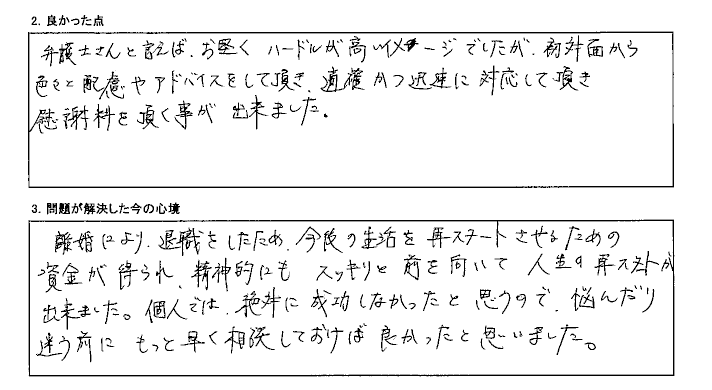 2. 良かった点
弁護士さんと言えば、お堅く ハードルが高いイメージでしたが、初対面から
色々と配慮やアドバイスをして頂き、適確かつ迅速に対応して頂き
慰謝料を頂く事が出来ました。
3. 問題が解決した今の心境
離婚により、退職をしたため、今後の生活を再スタートさせるための
資金が得られ、精神的にもスッキリと前を向いて人生の再スタートが
出来ました。個人では、絶対に成功しなかったと思うので、悩んだり
迷う前にもっと早く相談しておけば良かったと思いました。